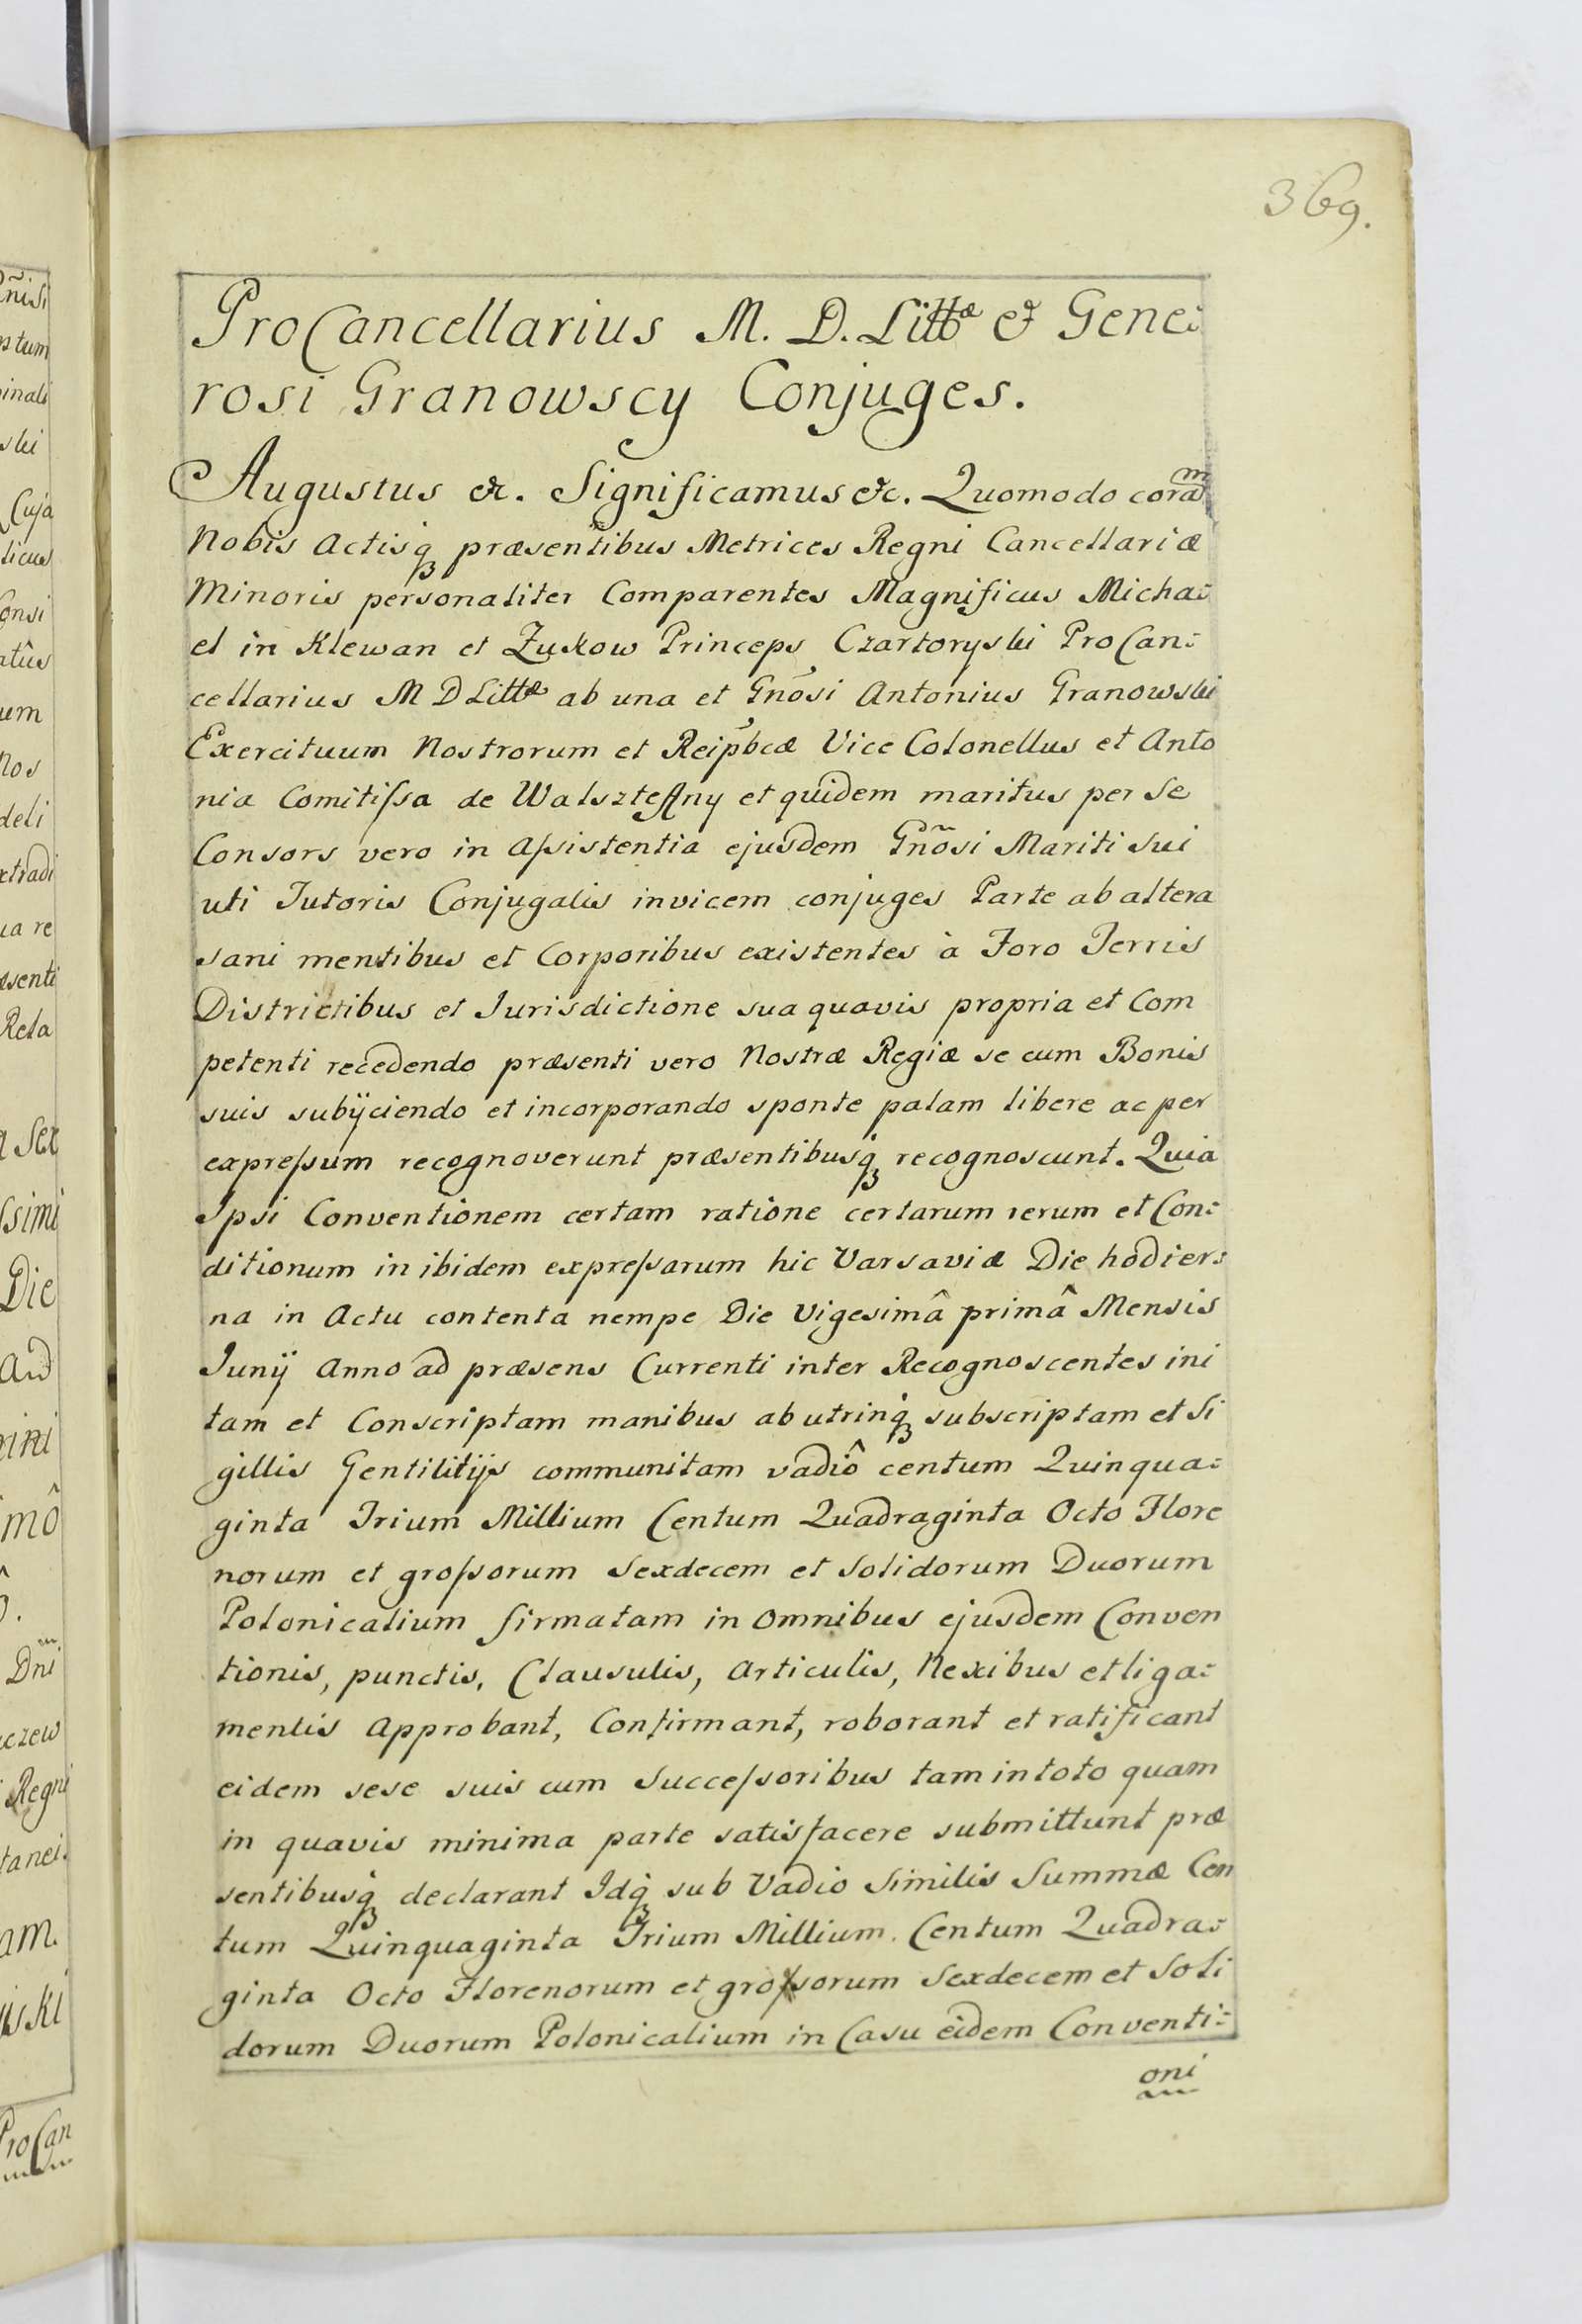 369.
ProCancellarius M. D. Littæ & Gene:
rosi Granowscy Conjuges.
Augustus &c. Significamus &c. Quomodo coram
Nobis Actisq₃ præsentibus Metrices Regni Cancellariæ
Minoris personaliter Comparentes Magnificus Micha:
el in Klewan et Zukow Princeps Czartoryski ProCan:
cellarius M D Littæ ab una et Gnõsi Antonius Granowski
Exercituum Nostrorum et Reipb̃cæ Vice Colonellus et Anto
nia Comitissa de Walszteyny et quidem maritus per se
Consors vero in Assistentia ejusdem Gñosi Mariti sui
uti Tutoris Conjugalis invicem conjuges Parte ab altera
sani mentibus et Corporibus existentes à Foro Terris
Districtibus et Jurisdictione sua quavis propria et Com
petenti recedendo præsenti vero Nostræ Regiæ se cum Bonis
suis subÿciendo et incorporando sponte palam libere ac per
expressum recognoverunt præsentibusq₃ recognoscunt. Quia
Ipsi Conventionem certam ratione certarum rerum et Con:
ditionum in ibidem expressarum hic Varsaviæ Die hodier:
na in Actu contenta nempe Die Vigesimâ primâ Mensis
Junÿ Anno ad præsens Currenti inter Recognoscentes ini
tam et Conscriptam manibus ab utrinq₃ subscriptam et Si
gillis Gentilitÿs communitam vadiô centum Quinqua:
ginta Trium Millium Centum Quadraginta Octo Flore
norum et grossorum Sexdecem et Solidorum Duorum
Polonicalium firmatam in Omnibus ejusdem Conven
tionis, punctis, Clausulis, Articulis, Nexibus et liga:
mentis Approbant, Confirmant, roborant et ratificant
eidem sese suis cum Successoribus tam in toto quam
in quavis minima parte satisfacere submittunt præ
sentibusq₃ declarant Idq₃ sub Vadio Similis Summæ Cen
tum Quinquaginta Trium Millium. Centum Quadra:
ginta Octo Florenorum et grossorum Sexdecem et Soli
dorum Duorum Polonicalium in Casu eidem Conventi:
oni